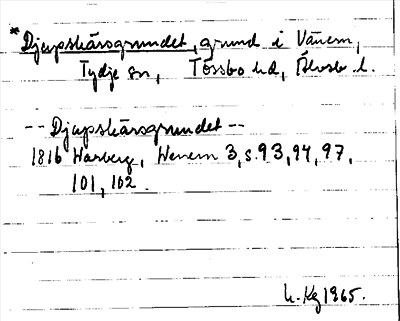 *Djupskärsgrundet, grund i Vänern,
Tydje sn, Tössbo hd, Älvsb l.
-- Djupskärsgrundet --
1816 Warberg, Wenern 3, s. 93, 94, 97,
101, 102.
1965.